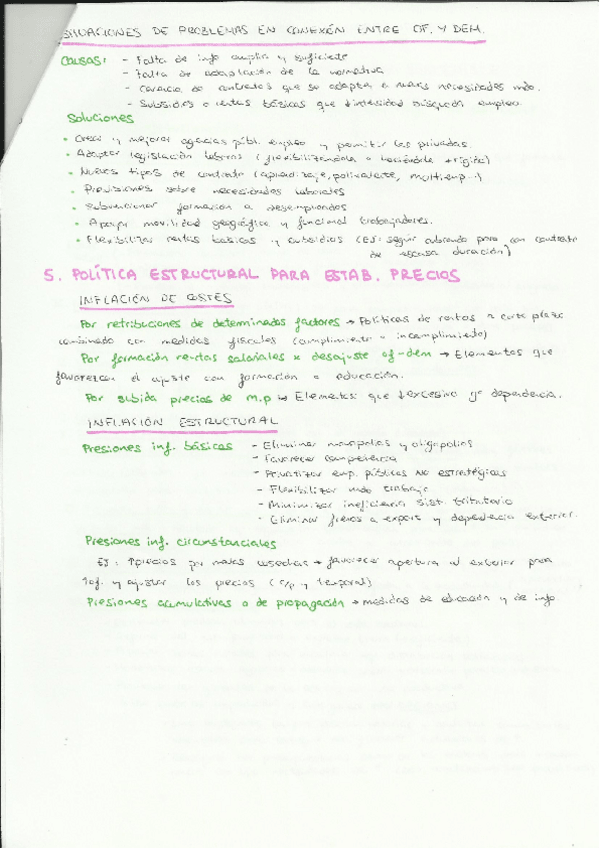 SITUACIONES DE PROBLEMAS EN CONEXIÓN ENTRE OF. Y DEM.
CAUSAS: - Falta de info amplia y suficiente
- Falta de adaptación de la normativa
- Carencia de contratos que se adapten a nuevas necesidades mdo.
- Subsidios o rentas básicas que ↓ intensidad búsqueda empleo.
Soluciones
• Crear y mejorar agencias públ. empleo y permitir las privadas.
• Adaptar legislación laboral (flexibilizándola o haciéndola + rígida)
• Nuevos tipos de contrato (aprendizaje, polivalente, multiemp...)
• Previsiones sobre necesidades laborales
• Subvencionar formación a desempleados
• Apoyar movilidad geográfica y funcional trabajadores.
• Flexibilizar rentas básicas y subsidios (EJ: seguir cobrando paro con contrato
de escasa duración)
5. POLÍTICA ESTRUCTURAL PARA ESTAB. PRECIOS
INFLACIÓN DE COSTES
Por retribuciones de determinados factores → Políticas de rentas a corto plazo
combinado con medidas fiscales (cumplimiento o incumplimiento)
Por formación rentas salariales x desajuste of-dem → Elementos que
favorezcan el ajuste con formación o educación.
Por subida precios de m.p → Elementos que ↓ excesivo gº dependencia.
INFLACIÓN ESTRUCTURAL
Presiones inf. básicas - Eliminar monopolios y oligopolios
- Favorecer competencia
- Privatizar emp. públicas NO estratégicas
- Flexibilizar mdo trabajo
- Minimizar ineficiencia sist. tributario
- Eliminar frenos a export y dependencia exterior.
Presiones inf. circunstanciales
EJ: ↑precios por malas cosechas → favorecer apertura al exterior para
↑of. y ajustar los precios (c/p y temporal)
Presiones acumulativas o de propagación → medidas de educación y de info